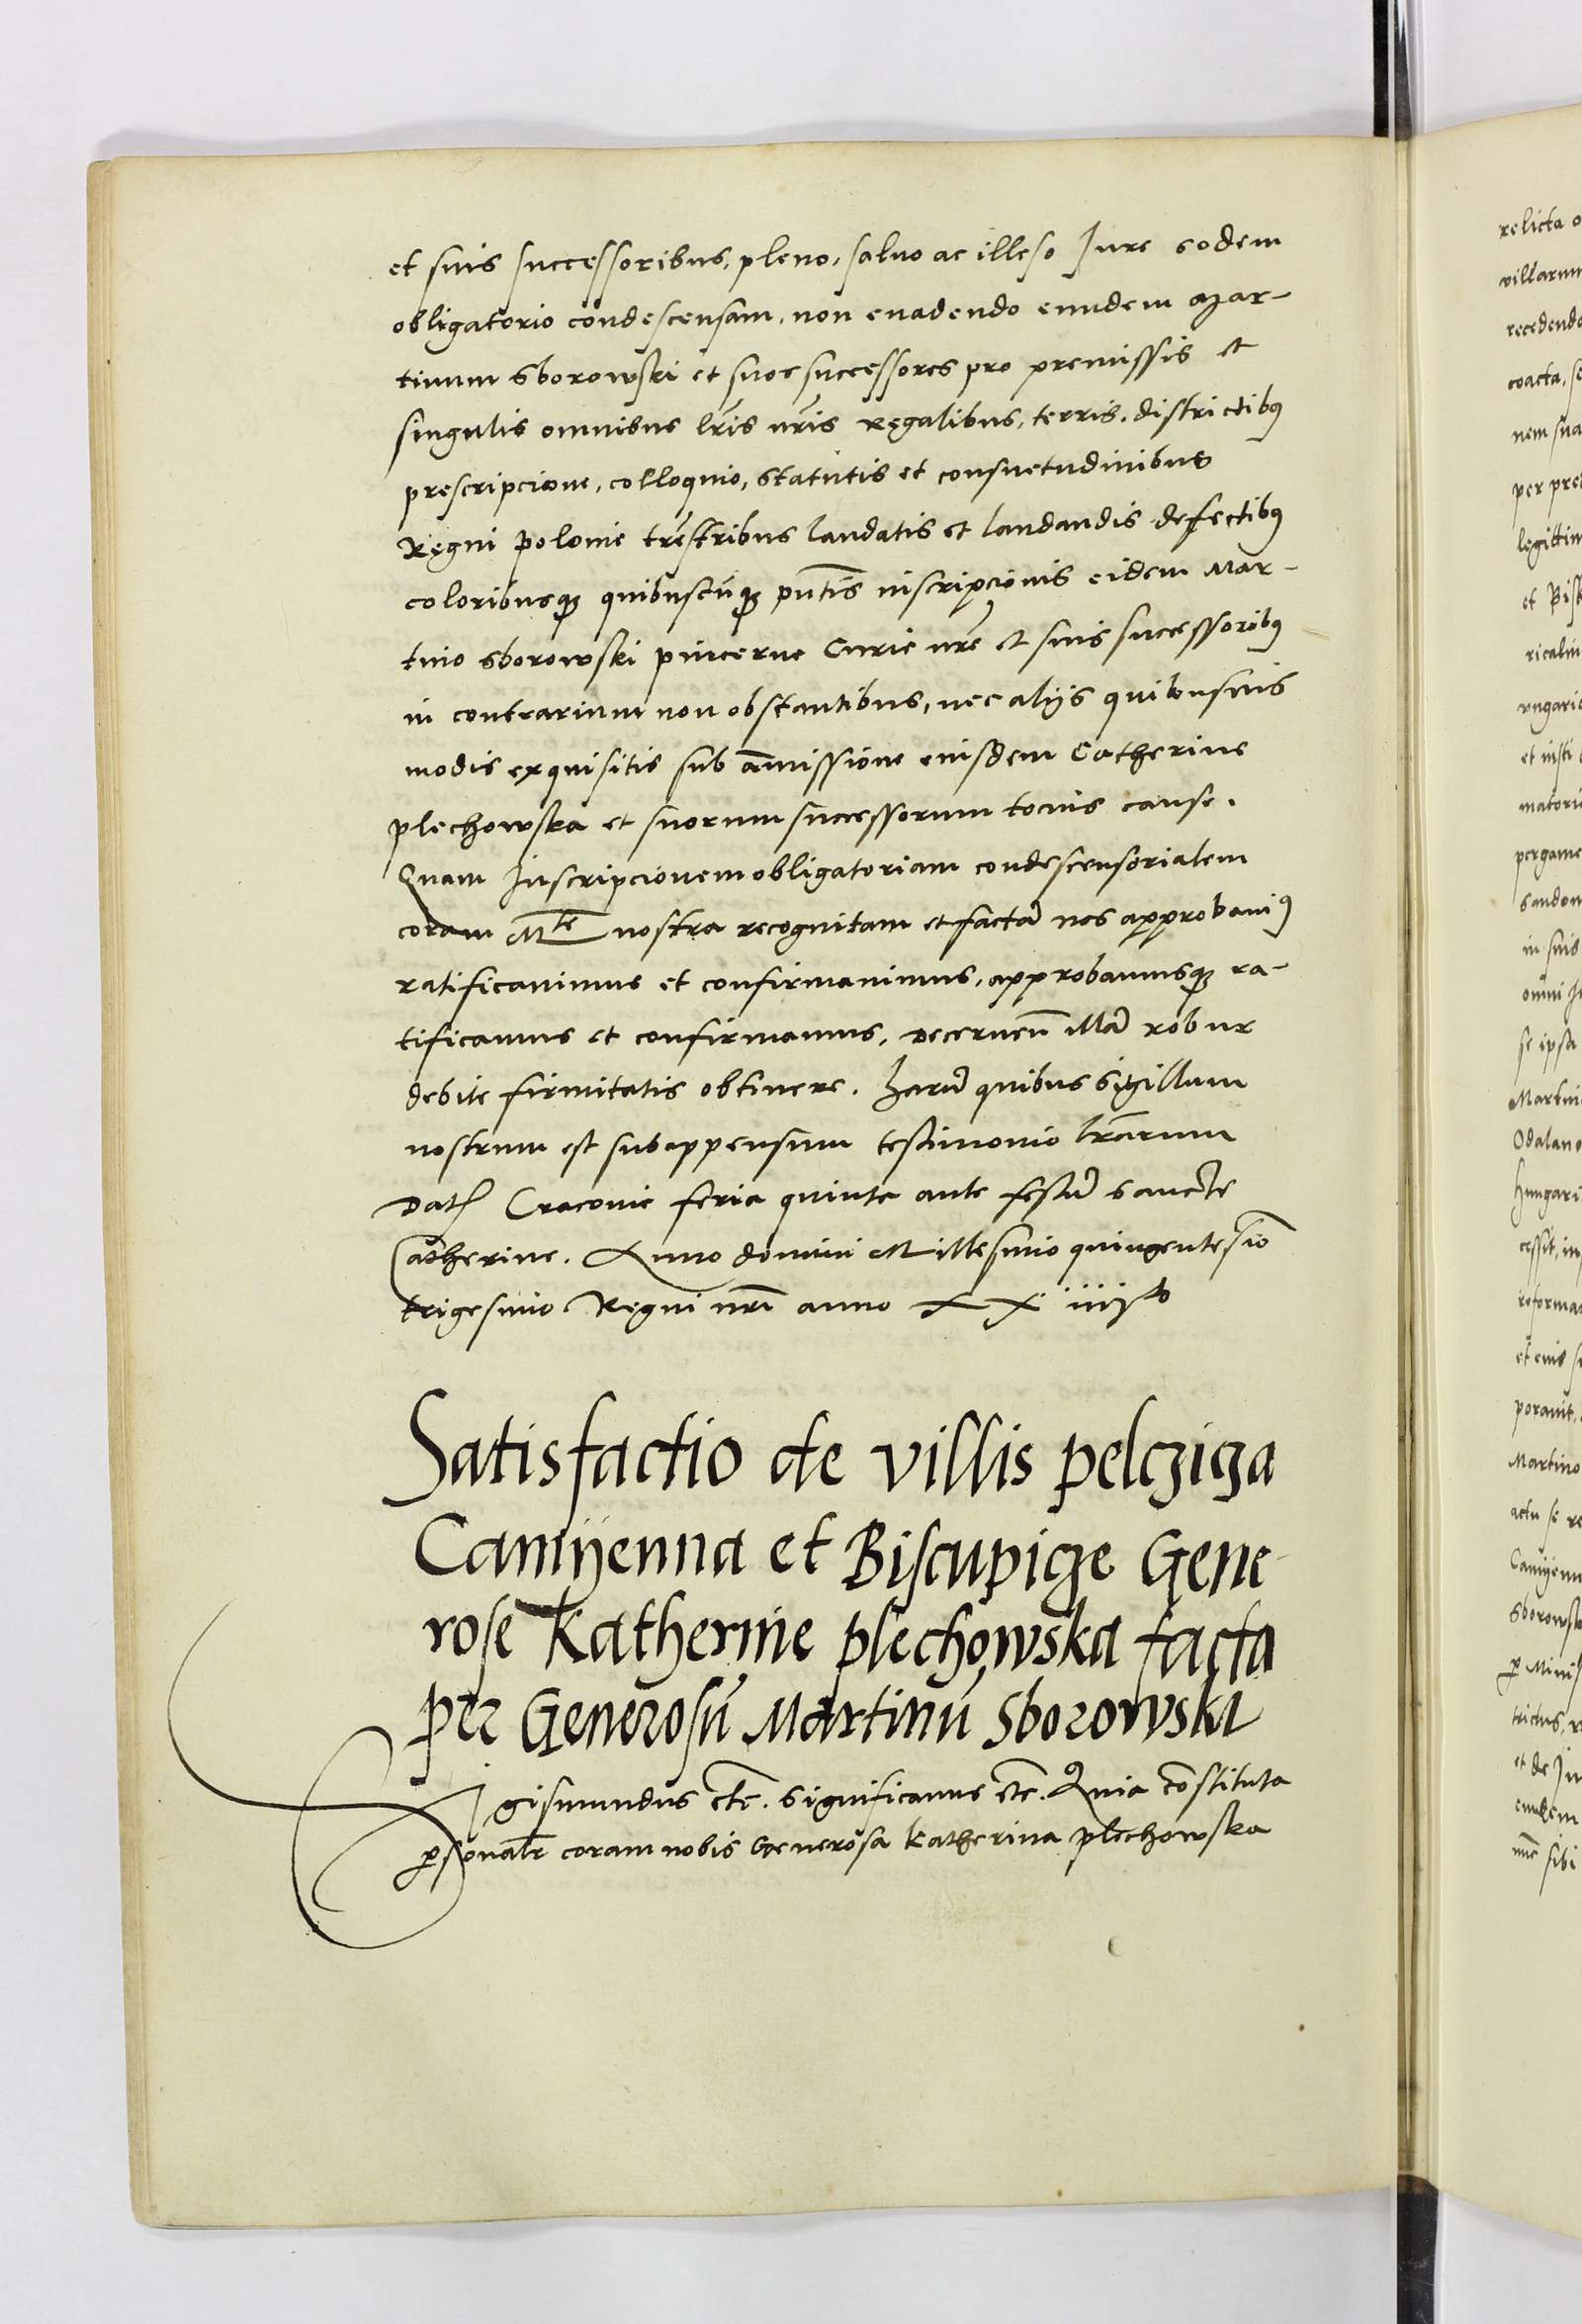 et suis successoribus, pleno, saluo ac illeso Jure eodem
obligatorio condescensam, non euadendo eundem Mar-
tinum Sborowski et suos successores pro premissis et
singulis omnibus lr̃is nr̃is Regalibus, terris, districtibꝯ
prescripcione, colloquio, statutis et consuetudinibus
Regni Polonie trr̃estribus laudatis et laudandis defectibꝯ
coloribusqꝫ quibuscũqꝫ pñtis inscripcionis eidem Mar-
tino Sborowski pincerne Curie nr̃e et suis successoribꝯ
in contrarium non obstantibus, nec alijs quibusuis
modis exquisitis sub am̃issione eiusdem Catherine
plechowska et suorum successorum tocius cause.
Quam Inscripcionem obligatoriam condescensorialem
coram Mte nostra recognitam et factã nos approbauimꝯ
ratificauimus et confirmauimus, approbamusqꝫ ra-
tificamus et confirmamus, decerneñ illã robur
debite firmitatis obtinere. Harũ quibus sigillum
nostrum est subappensum testimonio lr̃arum
Dat̃ Cracouie feria quinta ante festũ Sancte
Catherine. Anno domini Millesimo quingentesĩo
trigesimo Regni nr̃i anno XX iiijto
Satisfactio de villis pelcziza
Camÿenna et Biscupicze Gene-
rose Katherine plechowska facta
per Generosũ Martinũ Sborowski
Sigismundus etc̃. Significamus etc̃. Quia cõstituta
ꝑsonalr̃ coram nobis Generosa Katherina plechowska
relicta
villarum
recedendo
coacta, se
nem sua
per pre
legittim
et Bis
ungarie
et insti
matori
pergame
Sandom
in suis
om̃i
se ipsa
Martin
Odalano
Hungari
cessit, in
reforma
et eius
porauit,
Martino
actu se re
Camÿenn
Sborowsk
et de Ju
eundem
nũc sibi